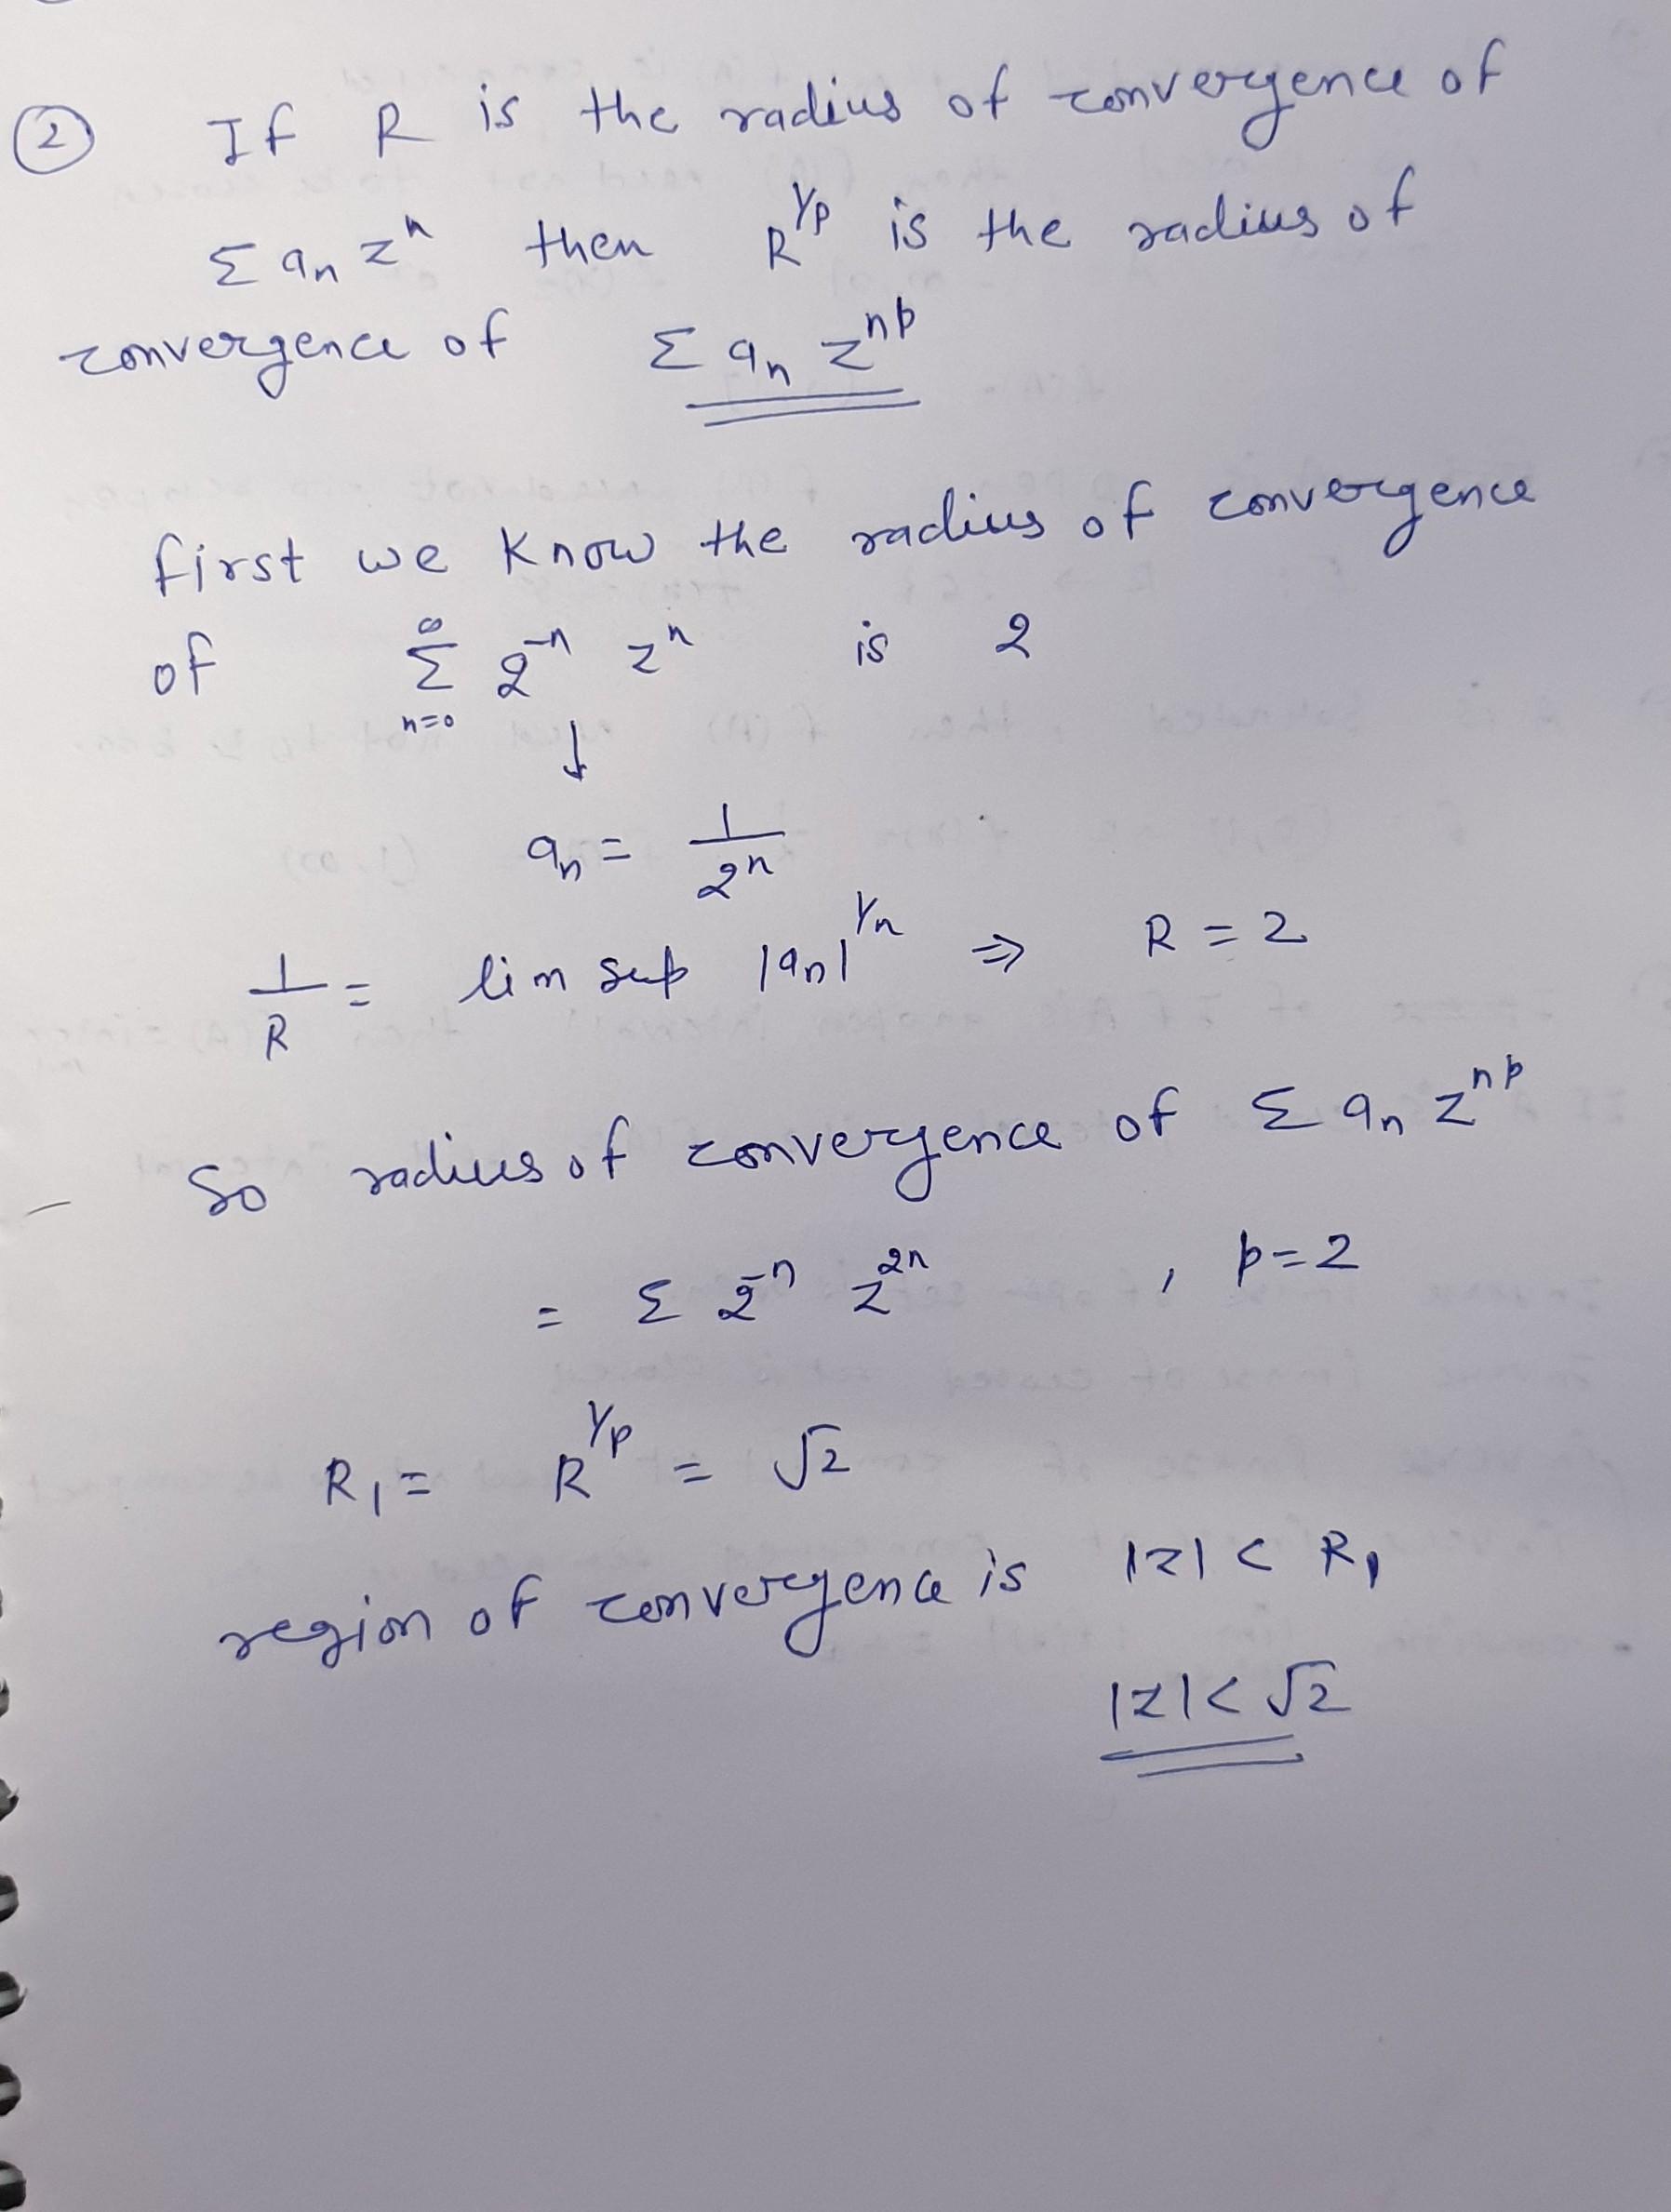 ② If R is the radius of convergence of
Σ aₙ zⁿ then R^{1/p} is the radius of
convergence of Σ aₙ z^{np}
first we know the radius of convergence
of \sum_{n=0}^{∞} 2^{-n} zⁿ is 2
↓
aₙ = \frac{1}{2ⁿ}
\frac{1}{R} = lim sup |aₙ|^{1/n} ⇒ R = 2
So radius of convergence of Σ aₙ z^{np}
= Σ 2^{-n} z^{2n} , p=2
R₁ = R^{1/p} = √2
region of convergence is |z| < R₁
|z| < √2